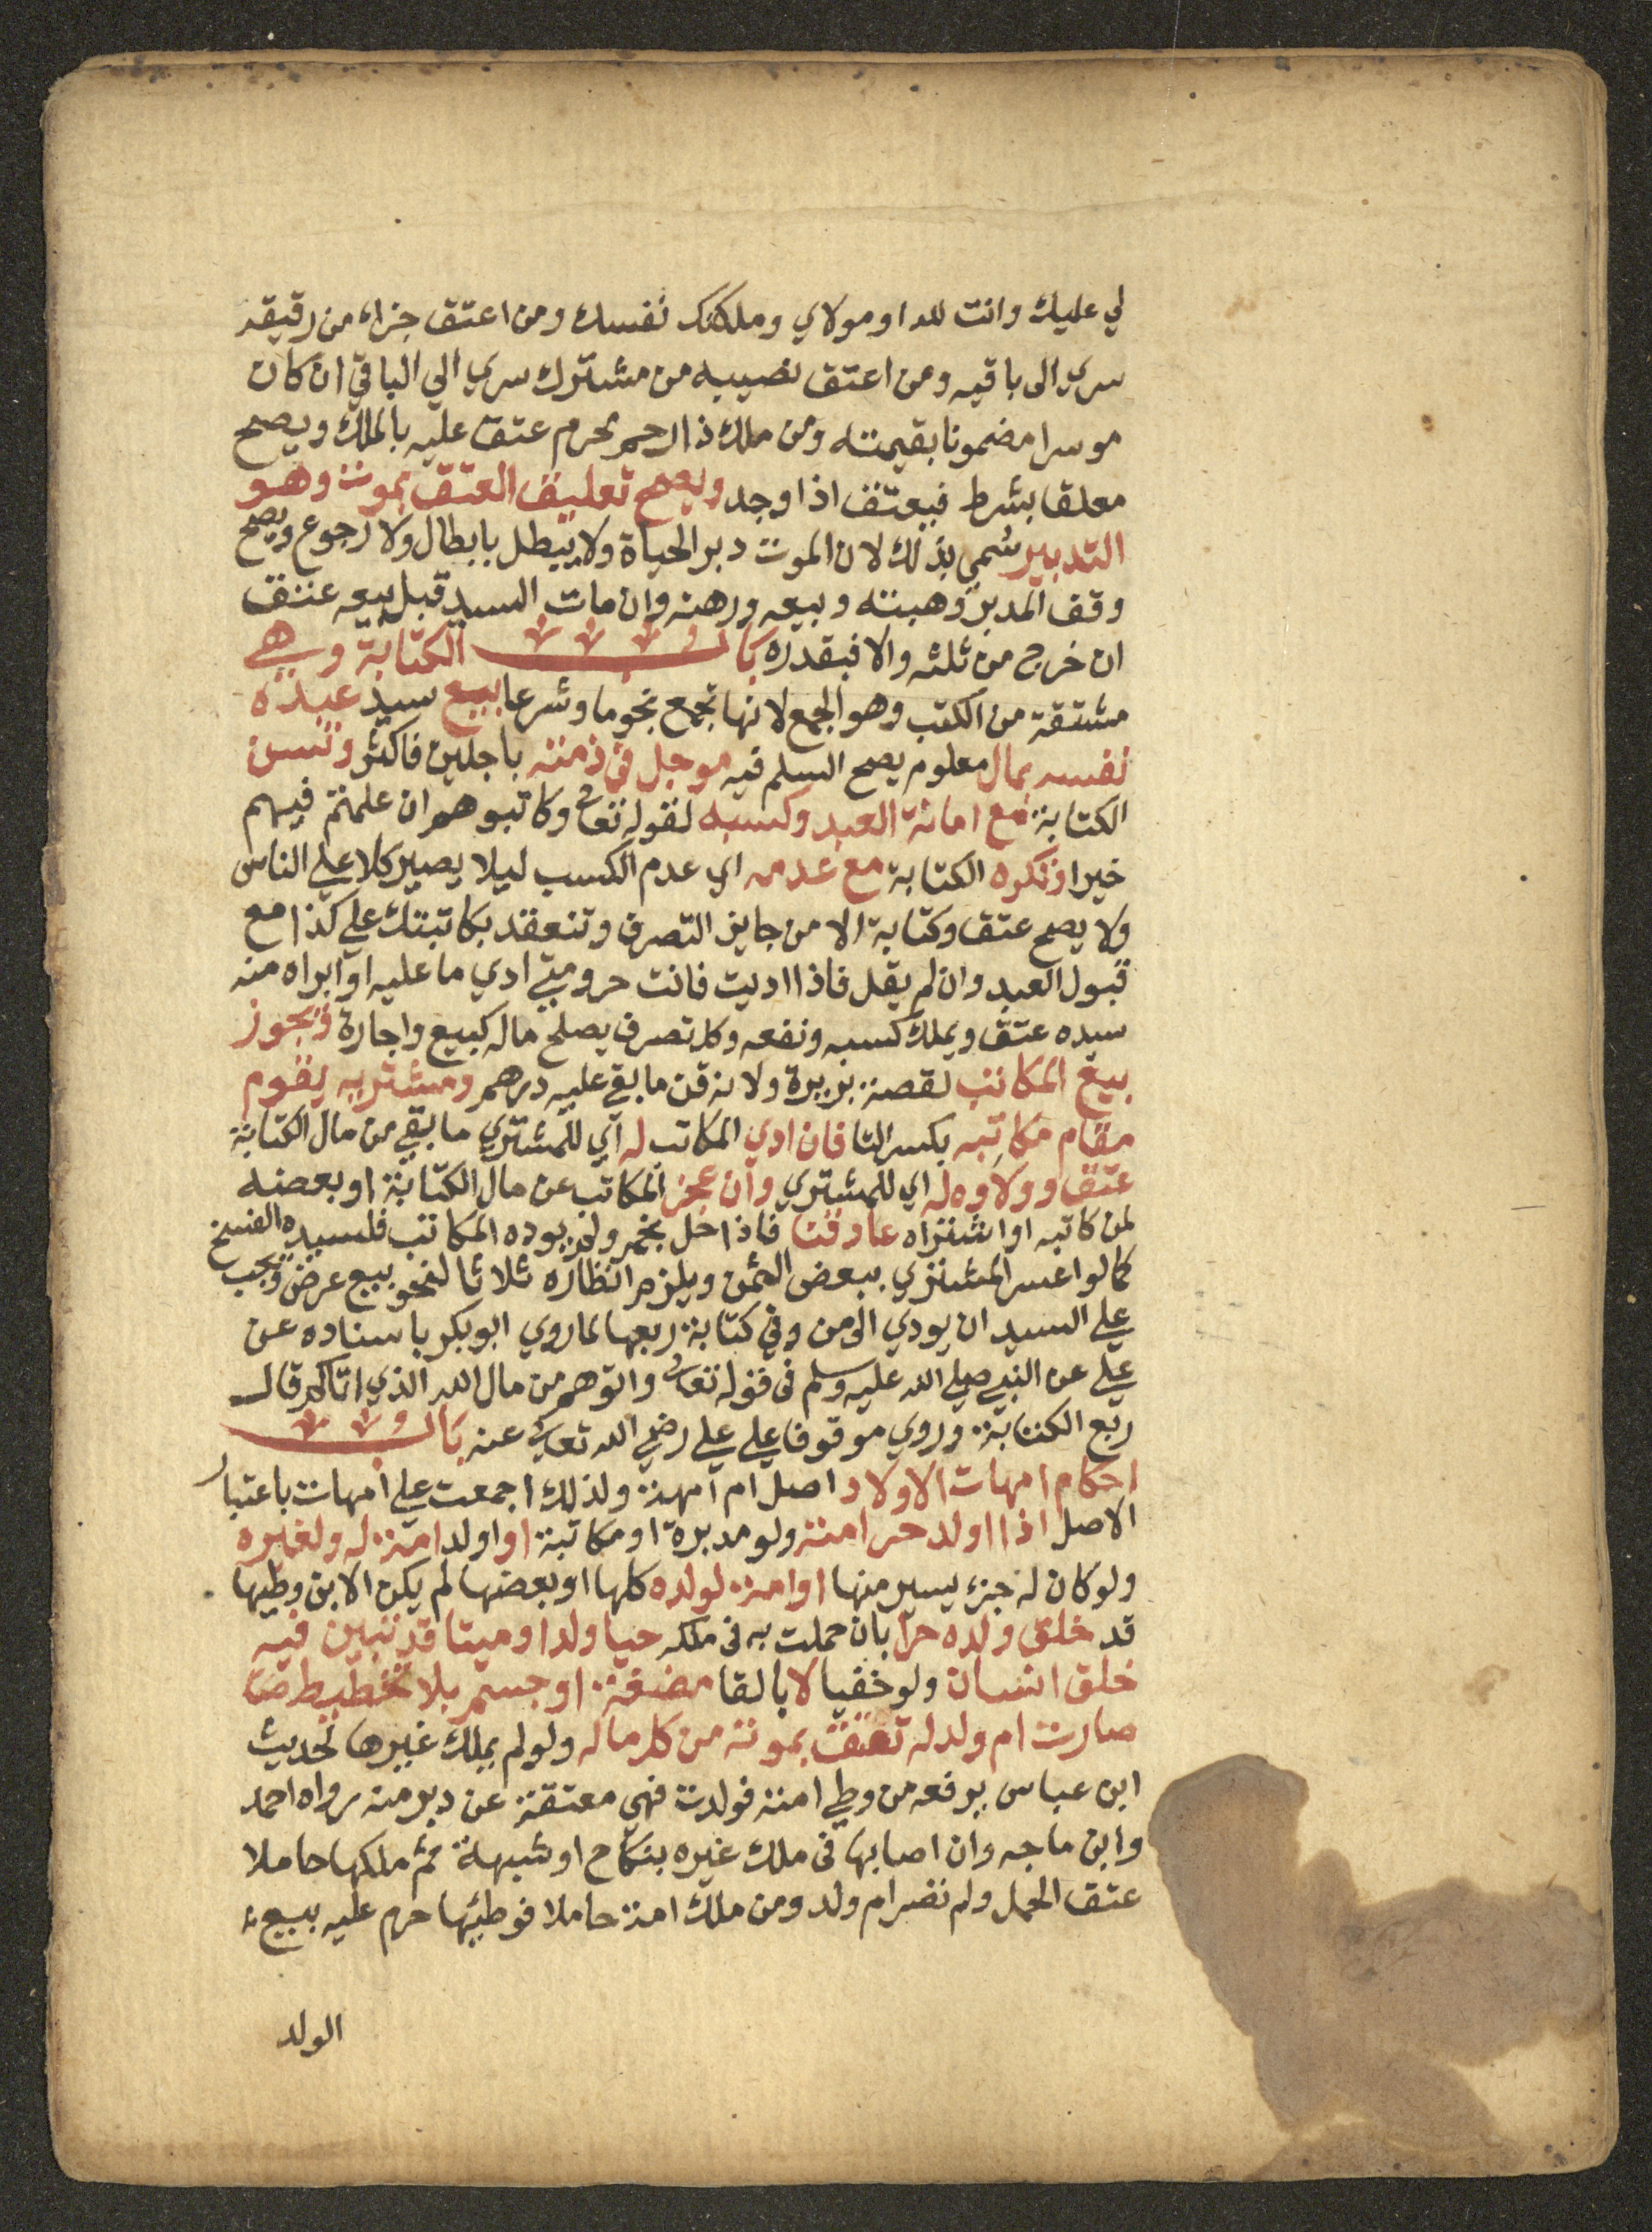 لي عليك وانت لله او مولاي وملكتك نفسك ومن اعتق جزا من رقيقه
سري الى باقيه ومن اعتق نصيبه من مشترك سري الي الباقي ان كان
موسرا مضمونا بقيمته ومن ملك ذا رحم محرم عتق عليه بالملك ويصح
معلقا بشرط فيعتق اذا وجد ويصح تعليق العتق بموت وهو
التدبير سمي بذلك لان الموت دبر الحياة ولا يبطل بابطال ولا رجوع ويصح
وقف المدبر وهبته وبيعه ورهنه وان مات السيد قبل بيعه عتق
ان خرج من ثلثه والا فبقدره باب الكتابة وهي
مشتقة من الكتب وهو الجمع لانها تجمع نجوما وشرعا بيع سيد عبده
نفسه بمال معلوم يصح السلم فيه موجل في ذمته باجلين فاكثر وتسن
الكتابة مع امانة العبد وكسبه لقوله تعالى وكاتبوهم ان علمتم فيهم
خيرا وتكره الكتابة مع عدمه اي عدم الكسب ليلا يصير كلا علي الناس
ولا يصح عتق وكتابة الا من جايز التصرف وتنعقد بكاتبتك علي كذا مع
قبول العبد وان لم يقل فاذا اديت فانت حر ومتي ادي ما عليه او ابراه منه
سيده عتق ويملك كسبه ونفعه وكل تصرف يصلح ماله كبيع واجارة ويجوز
بيع المكاتب لقصة بريرة ولانه قن ما بقي عليه درهم ومشتريه يقوم
مقام مكاتبه بكسر التا فان ادي المكاتب له اي للمشتري ما بقي من مال الكتابة
عتق وولاوه له اي للمشتري وان عجز المكاتب عن مال الكتابة او بعضه
لمن كاتبه او اشتراه عاد قنا فاذا حل نجم ولم يوده المكاتب فلسيده الفسخ
كما لو اعسر المشتري ببعض الثمن ويلزم انظاره ثلاثا لنحو بيع عرض ويجب
علي السيد ان يودي الى من وفي كتابة ربعها لما روي ابو بكر باسناده عن
علي عن النبي صلي الله عليه وسلم في قوله تعالى واتوهم من مال الله الذي اتاكم قال
ربع الكتابة وروي موقوفا علي علي رضي الله تعالى عنه باب
احكام امهات الاولاد اصل ام امهة ولذلك اجمعت علي امهات باعتبار
الاصل اذا اولد حر امته ولو مدبرة او مكاتبة او اولد امة له ولغيره
ولو كان له جزء يسير منها او امة لولده كلها او بعضها لم يكن الابن وطيها
قد خلق ولده حرا بان حملت به في ملكه حيا ولد او ميتا قد تبين فيه
خلق انسان ولو خفيا لا بالقا مضغة او جسم بلا تخطيط
صارت ام ولد له تعتق بموته من كل ماله ولو لم يملك غيرها لحديث
ابن عباس يرفعه من وطي امته فولدت فهي معتقة عن دبر منه رواه احمد
وابن ماجه وان اصابها في ملك غيره بنكاح او شبهة ثم ملكها حاملا
عتق الحمل ولم تصر ام ولد ومن ملك امة حاملا فوطيها حرم عليه بيع
الولد